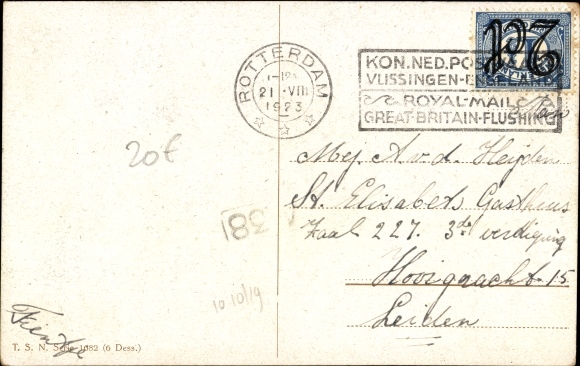 ROTTERDAM
21 ·VIII
1923
KON. NED. POST
VLISSINGEN-ENGELAND
ROYAL-MAIL
GREAT-BRITAIN-FLUSHING
20f
Mej A. v. d. Heijden
St. Elisabeth Gasthuis
Zaal 227. 3de verdieping
Hooigracht 15
Leiden
38
10 10/19
Fientje
T. S. N. Serie 1082 (6 Dess.)